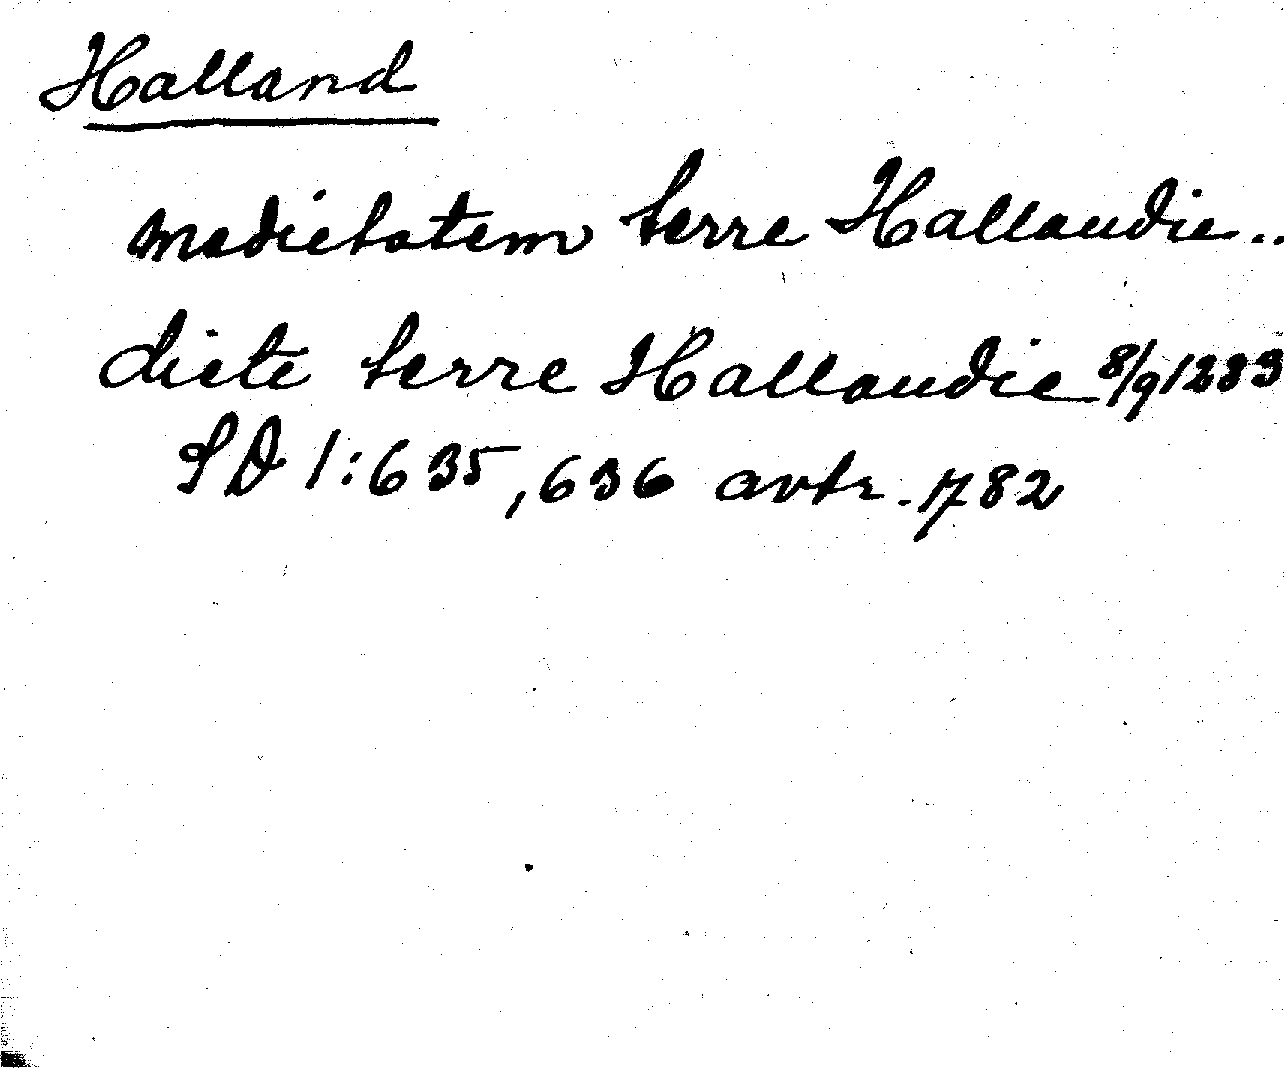 Halland
medietatem terre Hallandie..
dicte terre Hallandie 8/9 1283
SD 1:635, 636 avtr. 782